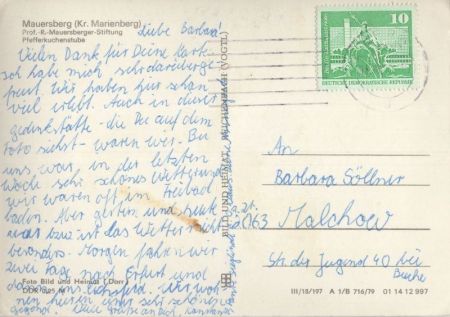 Mauersberg (Kr. Marienberg)
Prof.-R.-Mauersberger-Stiftung
Pfefferkuchenstube
Liebe Barbara!
Vielen Dank für Deine Karte.
Ich habe mich sehr darüber ge-
freut. Wir haben hier schon
viel erlebt. Auch in dieser
Gedenkstätte - die Du auf dem
Foto siehst - waren wir. Bei
uns war in der letzten
Woche sehr schönes Wetter und
wir waren oft im Freibad
baden. Aber gestern und heute
war das Wetter nicht
besonders. Morgen fahren wir
zwei Tage nach Erfurt und
Foto Bild und Heimat (Darr)
BILD UND HEIMAT REICHENBACH (VOGTL)
10
DEUTSCHE DEMOKRATISCHE REPUBLIK
An
Barbara Söllner
2063 Malchow
Str. der Jugend 40 bei
III/18/197 A 1/B 716/79 01 14 12 997